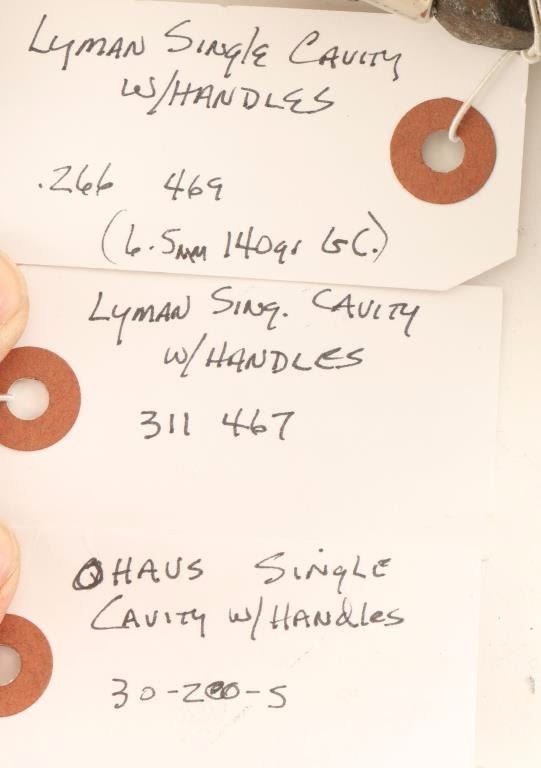 Lyman Single Cavity
w/Handles
.266 469
(6.5mm 140gr GC.)
Lyman Sing. Cavity
w/Handles
311 467
Ohaus Single
Cavity w/Handles
30-200-S